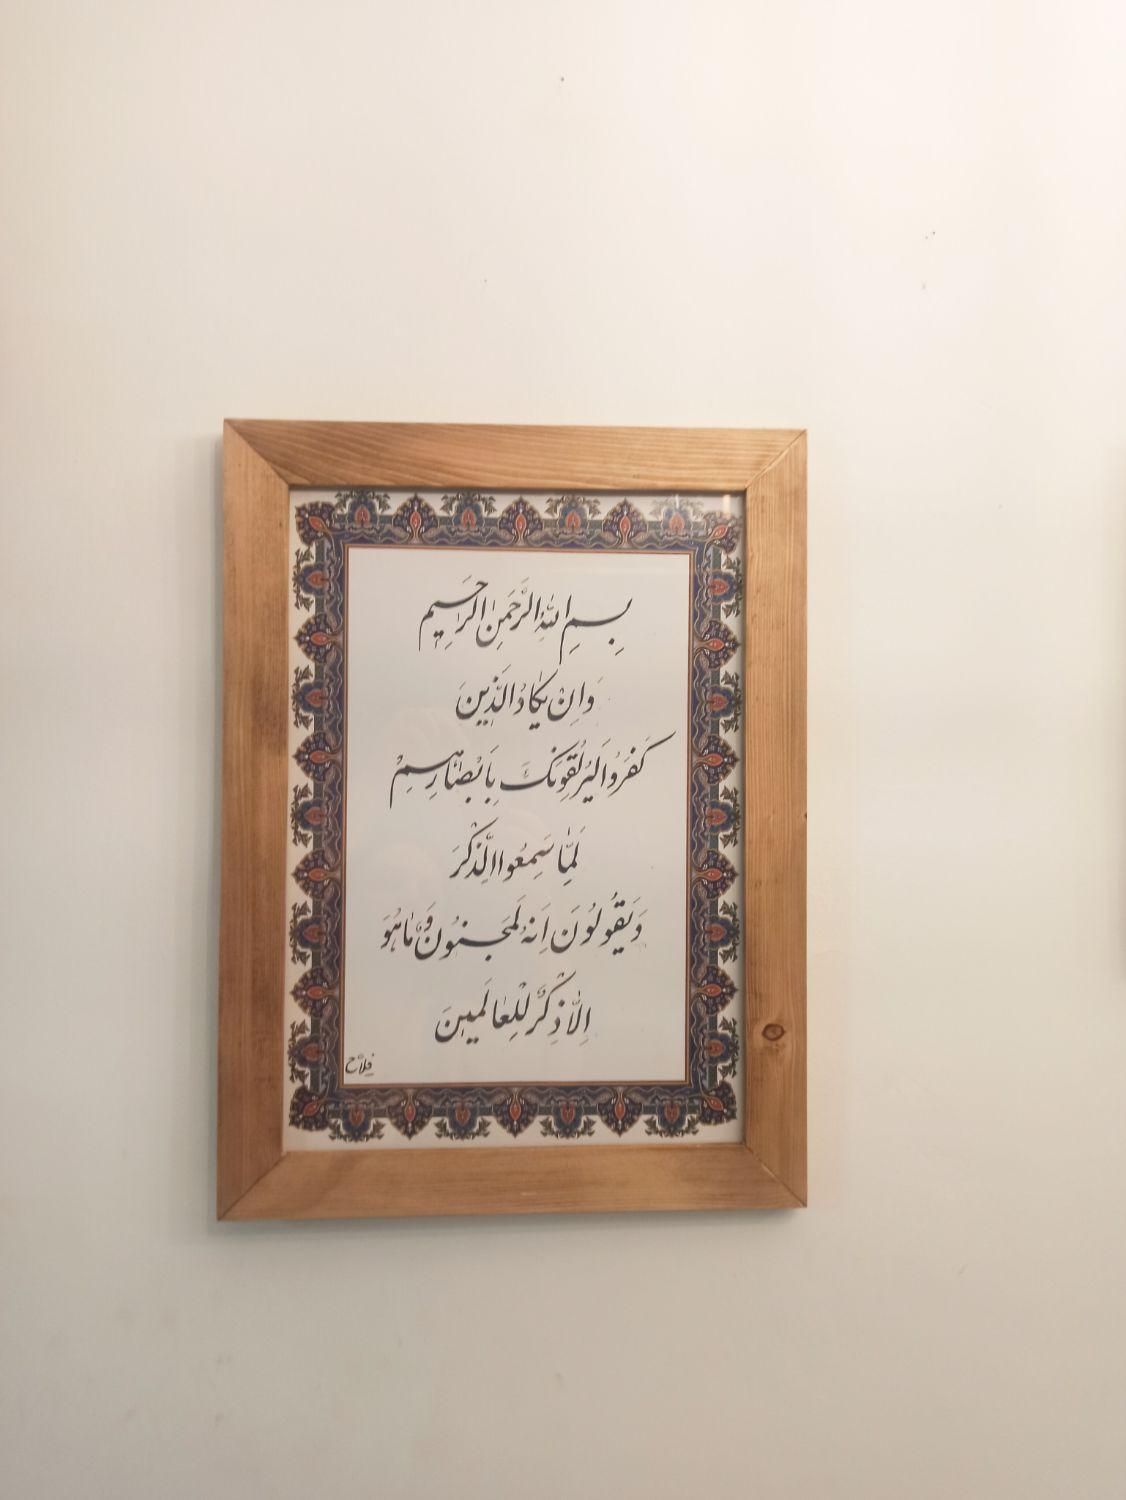 بِسمِ اللهِ الرَّحمَنِ الرَّحیمِ
وَاِنْ یَکادُ الَّذینَ
کَفَرُوا لَیُزْلِقُونَکَ بِاَبْصارِهِمْ
لَمّا سَمِعُوا الذِّکْرَ
وَیَقُولُونَ اِنَّهُ لَمَجنُونٌ وَماهُوَ
اِلّا ذِکْرٌ لِلْعالَمینَ
فلاح